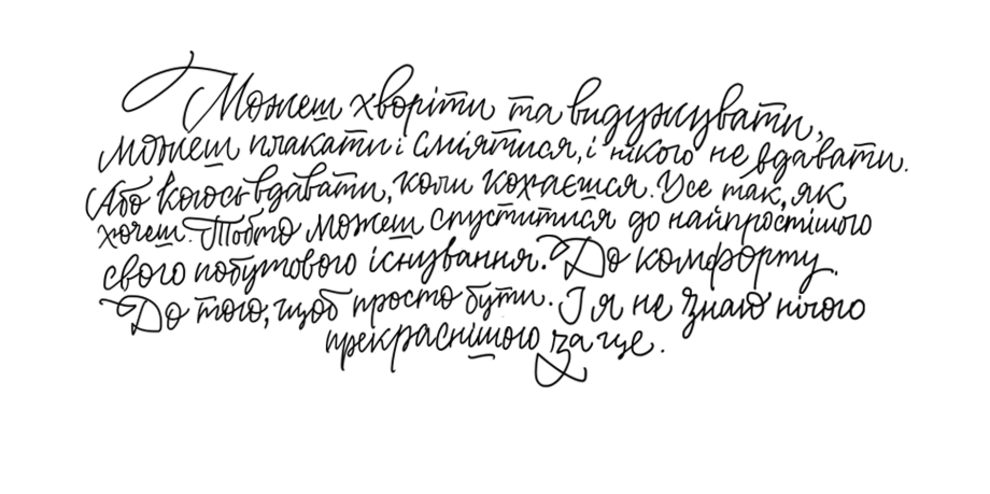 Можеш хворіти та видужувати,
можеш плакати і сміятися, і нікого не вдавати.
Або когось вдавати, коли кохаєшся. Усе так, як
хочеш. Тобто можеш спуститися до найпростішого
свого побутового існування. До комфорту.
До того, щоб просто бути. І я не знаю нічого
прекраснішого за це.